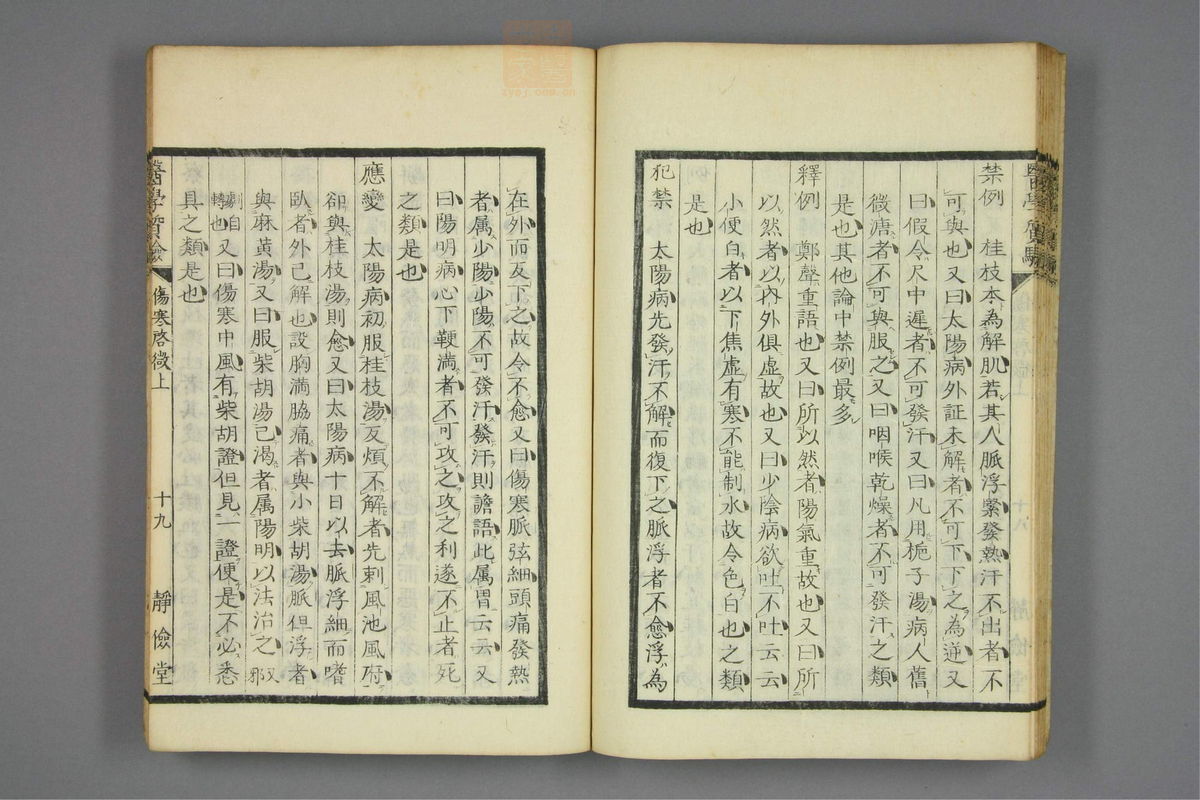 禁例 桂枝本為解肌若其人脈浮緊發熱汗不出者不
可與也又曰太陽病外証未解者不可下下之為逆又
曰假令尺中遲者不可發汗又曰凡用梔子湯病人舊
微溏者不可與服之又曰咽喉乾燥者不可發汗之類
是也其他論中禁例最多
釋例 鄭聲重語也又曰所以然者陽氣重故也又曰所
以然者以內外俱虛故也又曰少陰病欲吐不吐云云
小便白者以下焦虛有寒不能制水故令色白也之類
是也
犯禁 太陽病先發汗不解而復下之脈浮者不愈浮為
在外而反下之故令不愈又曰傷寒脈弦細頭痛發熱
者属少陽少陽不可發汗發汗則譫語此属胃云云又
曰陽明病心下鞕滿者不可攻之攻之利遂不止者死
之類是也
應變 太陽病初服桂枝湯反煩不解者先刺風池風府
卻與桂枝湯則愈又曰太陽病十日以去脈浮細而嗜
臥者外已解也設胸滿脇痛者與小柴胡湯脈但浮者
與麻黃湯又曰服柴胡湯已渴者属陽明以法治之
轉也又曰傷寒中風有柴胡證但見一證便是不必悉
具之類是也
醫學質驗 傷寒啓微上 十九 靜儉堂